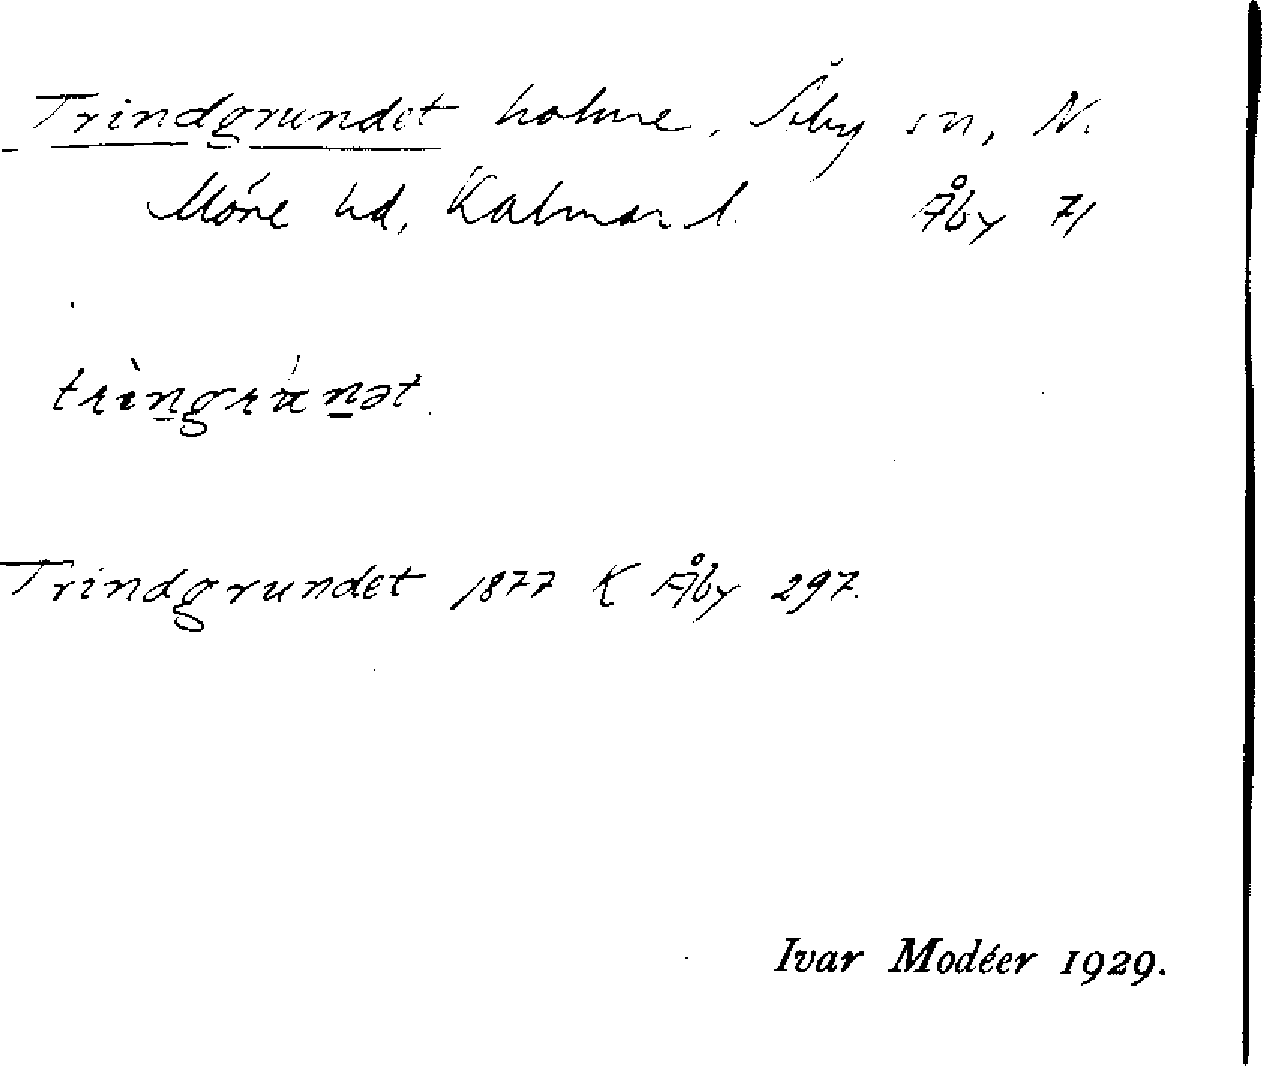 Trindgrundet holme, Åby sn, N.
Möre hd, Kalmar l. Åby 71
trìngrúnət.
Trindgrundet 1877 K Åby 297.
Ivar Modéer 1929.